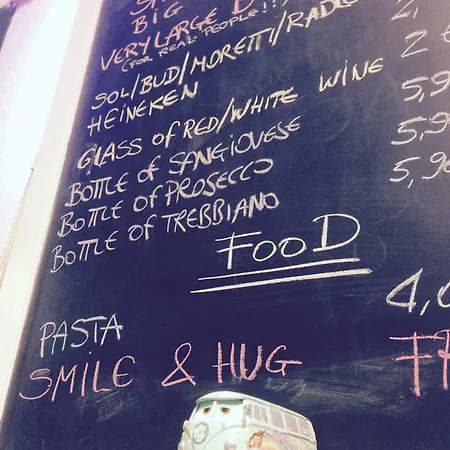 BIG
VERY LARGE
(FOR REAL PEOPLE!!)
SOL/BUD/MORETTI/RADLER 2,
HEINEKEN
GLASS OF RED/WHITE WINE 2
BOTTLE OF SANGIOVESE 5,9
BOTTLE OF PROSECCO 5,9
BOTTLE OF TREBBIANO 5,90
FOOD
PASTA 4,
SMILE & HUG